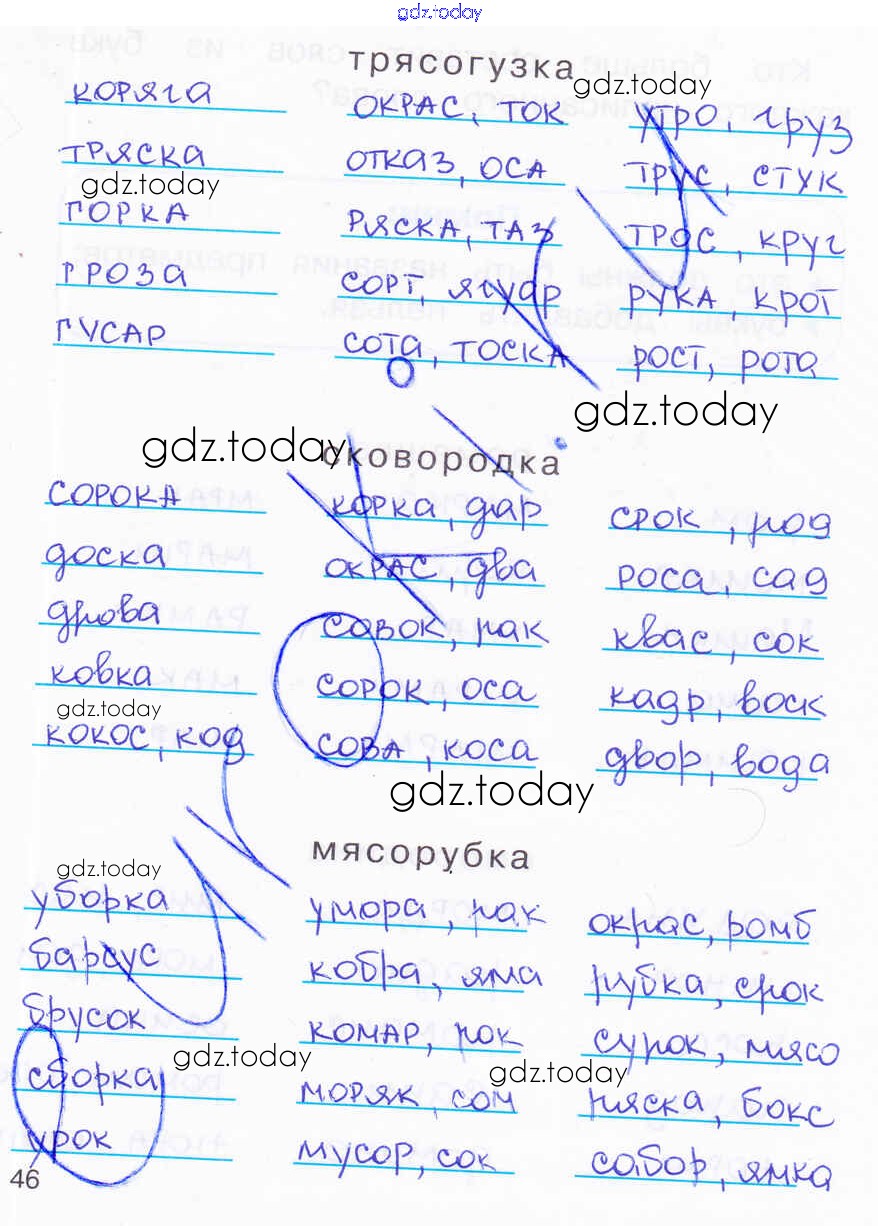 gdz.today
трясогузка
коряга
ОКРАС, ТОК
утро, груз
gdz.today
ТРЯСКА
ОТКАЗ, ОСА
ТРУС, СТУК
gdz.today
ГОРКА
РЯСКА, ТАЗ
ТРОС, КРУГ
ГРОЗА
СОРТ, ЯГУАР
РУКА, КРОТ
ГУСАР
СОТА, ТОСКА
РОСТ, рота
gdz.today
gdz.today
сковородка
СОРОКА
КОРКА, дар
СРОК, род
доска
ОКРАС, два
роса, сад
дрова
СОВОК, рак
квас, сок
ковка
СОРОК, оса
кадр, воск
gdz.today
кокос, код
СОВА, коса
двор, вода
gdz.today
мясорубка
gdz.today
уборка
умора, рак
окрас, ромб
барсус
кобра, яма
рубка, срок
брусок
КОМАР, рок
сурок, мясо
gdz.today
сборка
gdz.today
МОРЯК, сом
ряска, бокс
урок
мусор, сок
сабор, ямка
46